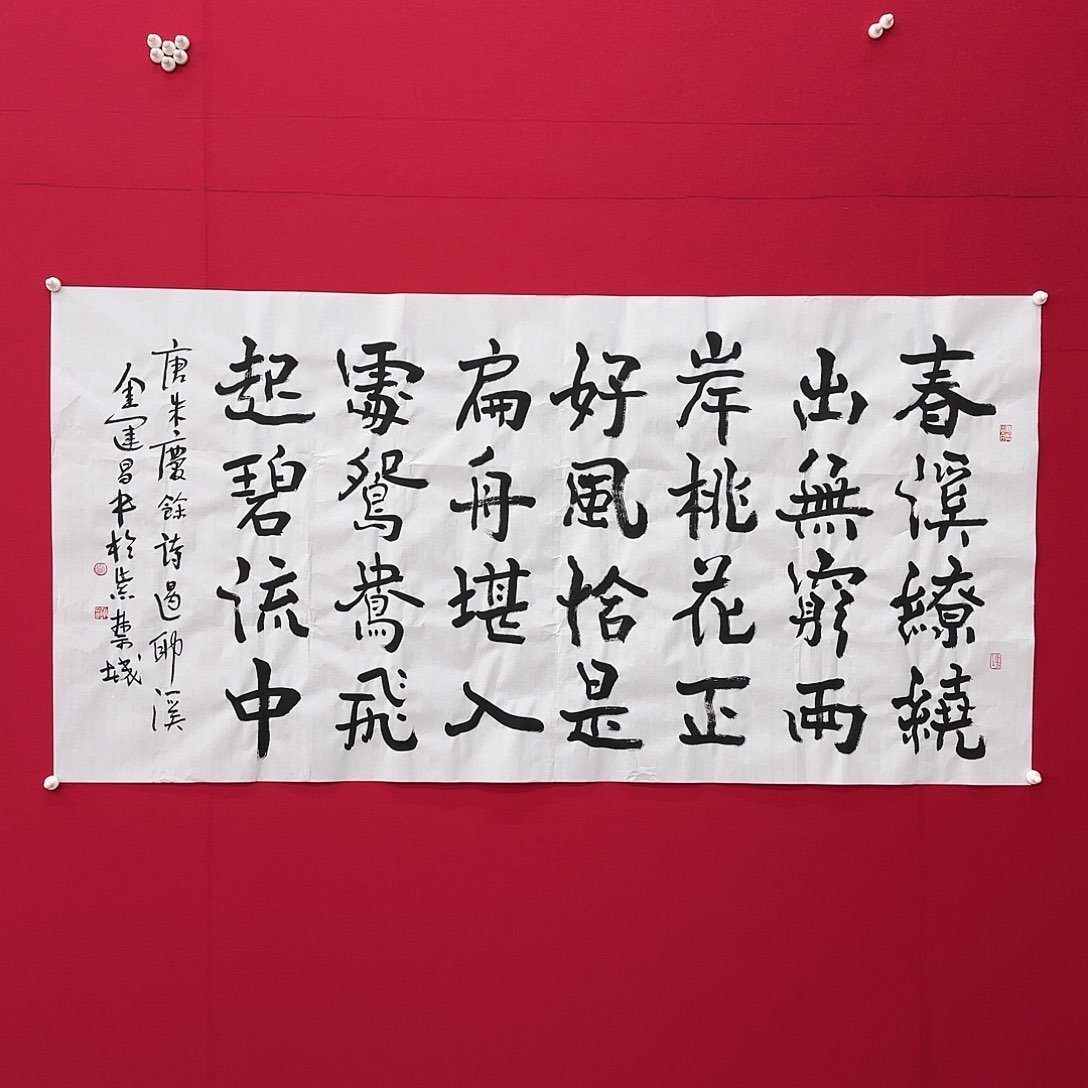 春溪繚繞
出無窮兩
岸桃花正
好風恰是
扁舟堪入
處鴛鴦飛
起碧流中
唐朱慶餘詩過耶溪
金運昌书於紫禁城